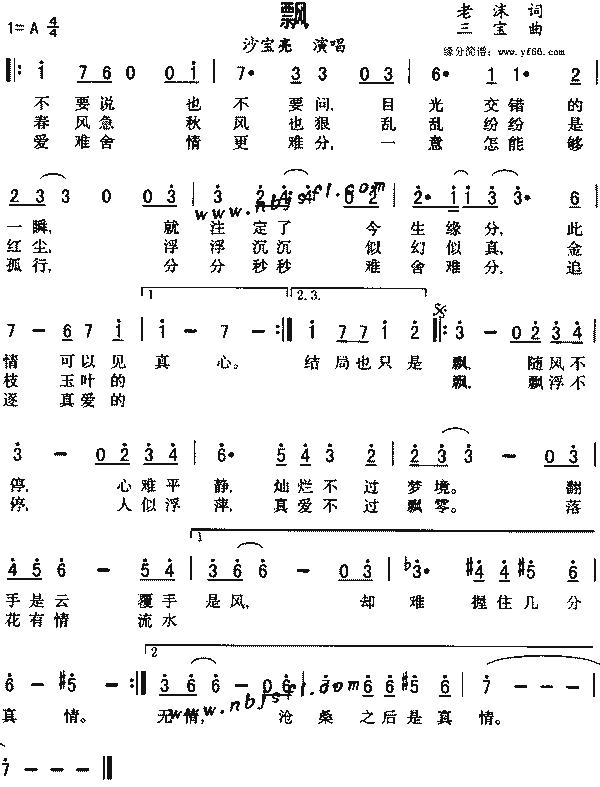 飘
1=A 4/4
老沫 词
三宝 曲
沙宝亮 演唱
缘分简谱: www.yf66.com
1 7 6 0 0 0 1 7· 3 3 0 3 6· 1 1· 2
不要说 也不 要问, 目光 交错的
春风急 秋风 也狠 乱乱 纷纷是
爱难舍 情更 难分, 一意 怎能够
2 3 3 0 0 0 3
一瞬, 就注定了 今生缘分, 此
红尘, 浮浮沉沉 似幻似真, 金
孤行, 分分秒秒 难舍难分, 追
www.nbjsfl.com
1 2.3.
7 — 6 7 1 1 — 7 — 1 7 7 1 2 3 — 0 2 3 4
情 可以见 真 心。 结局也只是 飘, 随风不
枝 玉叶的 飘, 飘浮不
逐 真爱的
3 — 0 2 3 4 6· 5 4 3 2 2 3 3 — 0 3
停, 心难平 静, 灿烂不过 梦境。 翻
停, 人似浮 萍, 真爱不过 飘零。 落
1
4 5 6 — 5 4 3 6 6 — 0 3 b3· #4 4 #5 6
手是云 覆手 是风, 却 难 握住几分
花有情 流水
2
6 — #5 — 3 6 6 — 0 6
真 情。 无情, 沧桑之后是真情。
www.nbjsfl.com
7 — — —